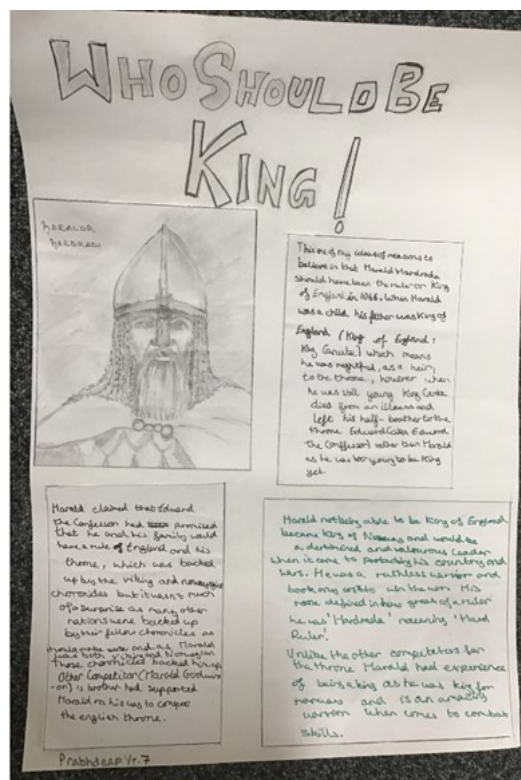 WHO SHOULD BE
KING!
HARALDR
HARDRADI
This one of my ideas of reasons to
believe in that Harald Hardrada
should have been the ruler or King
of England in 1066. When Harald
was a child his father was King of
England (King of England:
King Canute) which means
he was rightful, as a heir,
to the throne, however when
he was still young King Canute
died from an illness and
left his half-brother to the
throne Edward Edward
The Confessor) rather than Harald
as he was too young to be King
yet.
Harald claimed that Edward
the Confessor had promised
that he and his family would
have a rule of England and his
throne, which was backed
up by the viking and
chronicles but it wasn't much
of a surprise as many other
nations were backed up
by their fellow chronicles as
and as Harald
was both viking and Norwegian
those chronicles backed him up.
Other Competitor (Harald Godwin
-on)'s brother had supported
Harald to conquer
the english throne.
Harald not being able to be King of England
became King of and would be
a determined and valourous leader
when it come to protecting his country and
wars. He was a ruthless warrior and
took any risk to win the war. His
name defined in how great of a ruler
he was 'Hardrada' meaning 'Hard
Ruler'.
Unlike the other competitors for
the throne Harald had experience
of being a king as he was king for
norway and is an amazing
warrior when comes to combat
skills.
Prabhdeep Yr.7